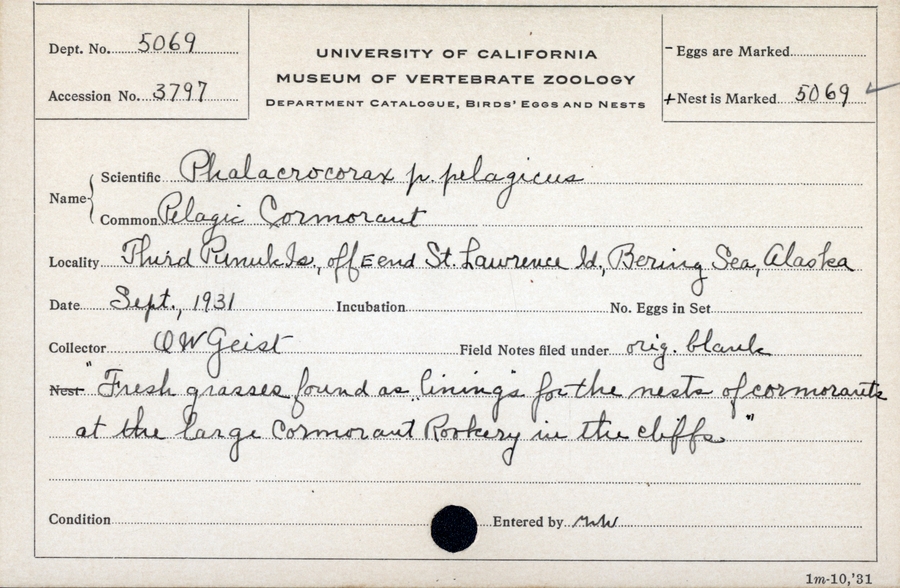 Dept. No. 5069
Accession No. 3797
UNIVERSITY OF CALIFORNIA
MUSEUM OF VERTEBRATE ZOOLOGY
DEPARTMENT CATALOGUE, BIRDS' EGGS AND NESTS
- Eggs are Marked
+ Nest is Marked 5069 ✓
Name { Scientific Phalacrocorax p. pelagicus
Common Pelagic Cormorant
Locality Third Punuk Is., off E end St. Lawrence Id., Bering Sea, Alaska
Date Sept., 1931 Incubation No. Eggs in Set
Collector OW Geist Field Notes filed under orig. blank
Nest "Fresh grasses found as "linings for the nests of cormorants
at the large Cormorant Rookery in the cliffs"
Condition Entered by
1m-10,'31